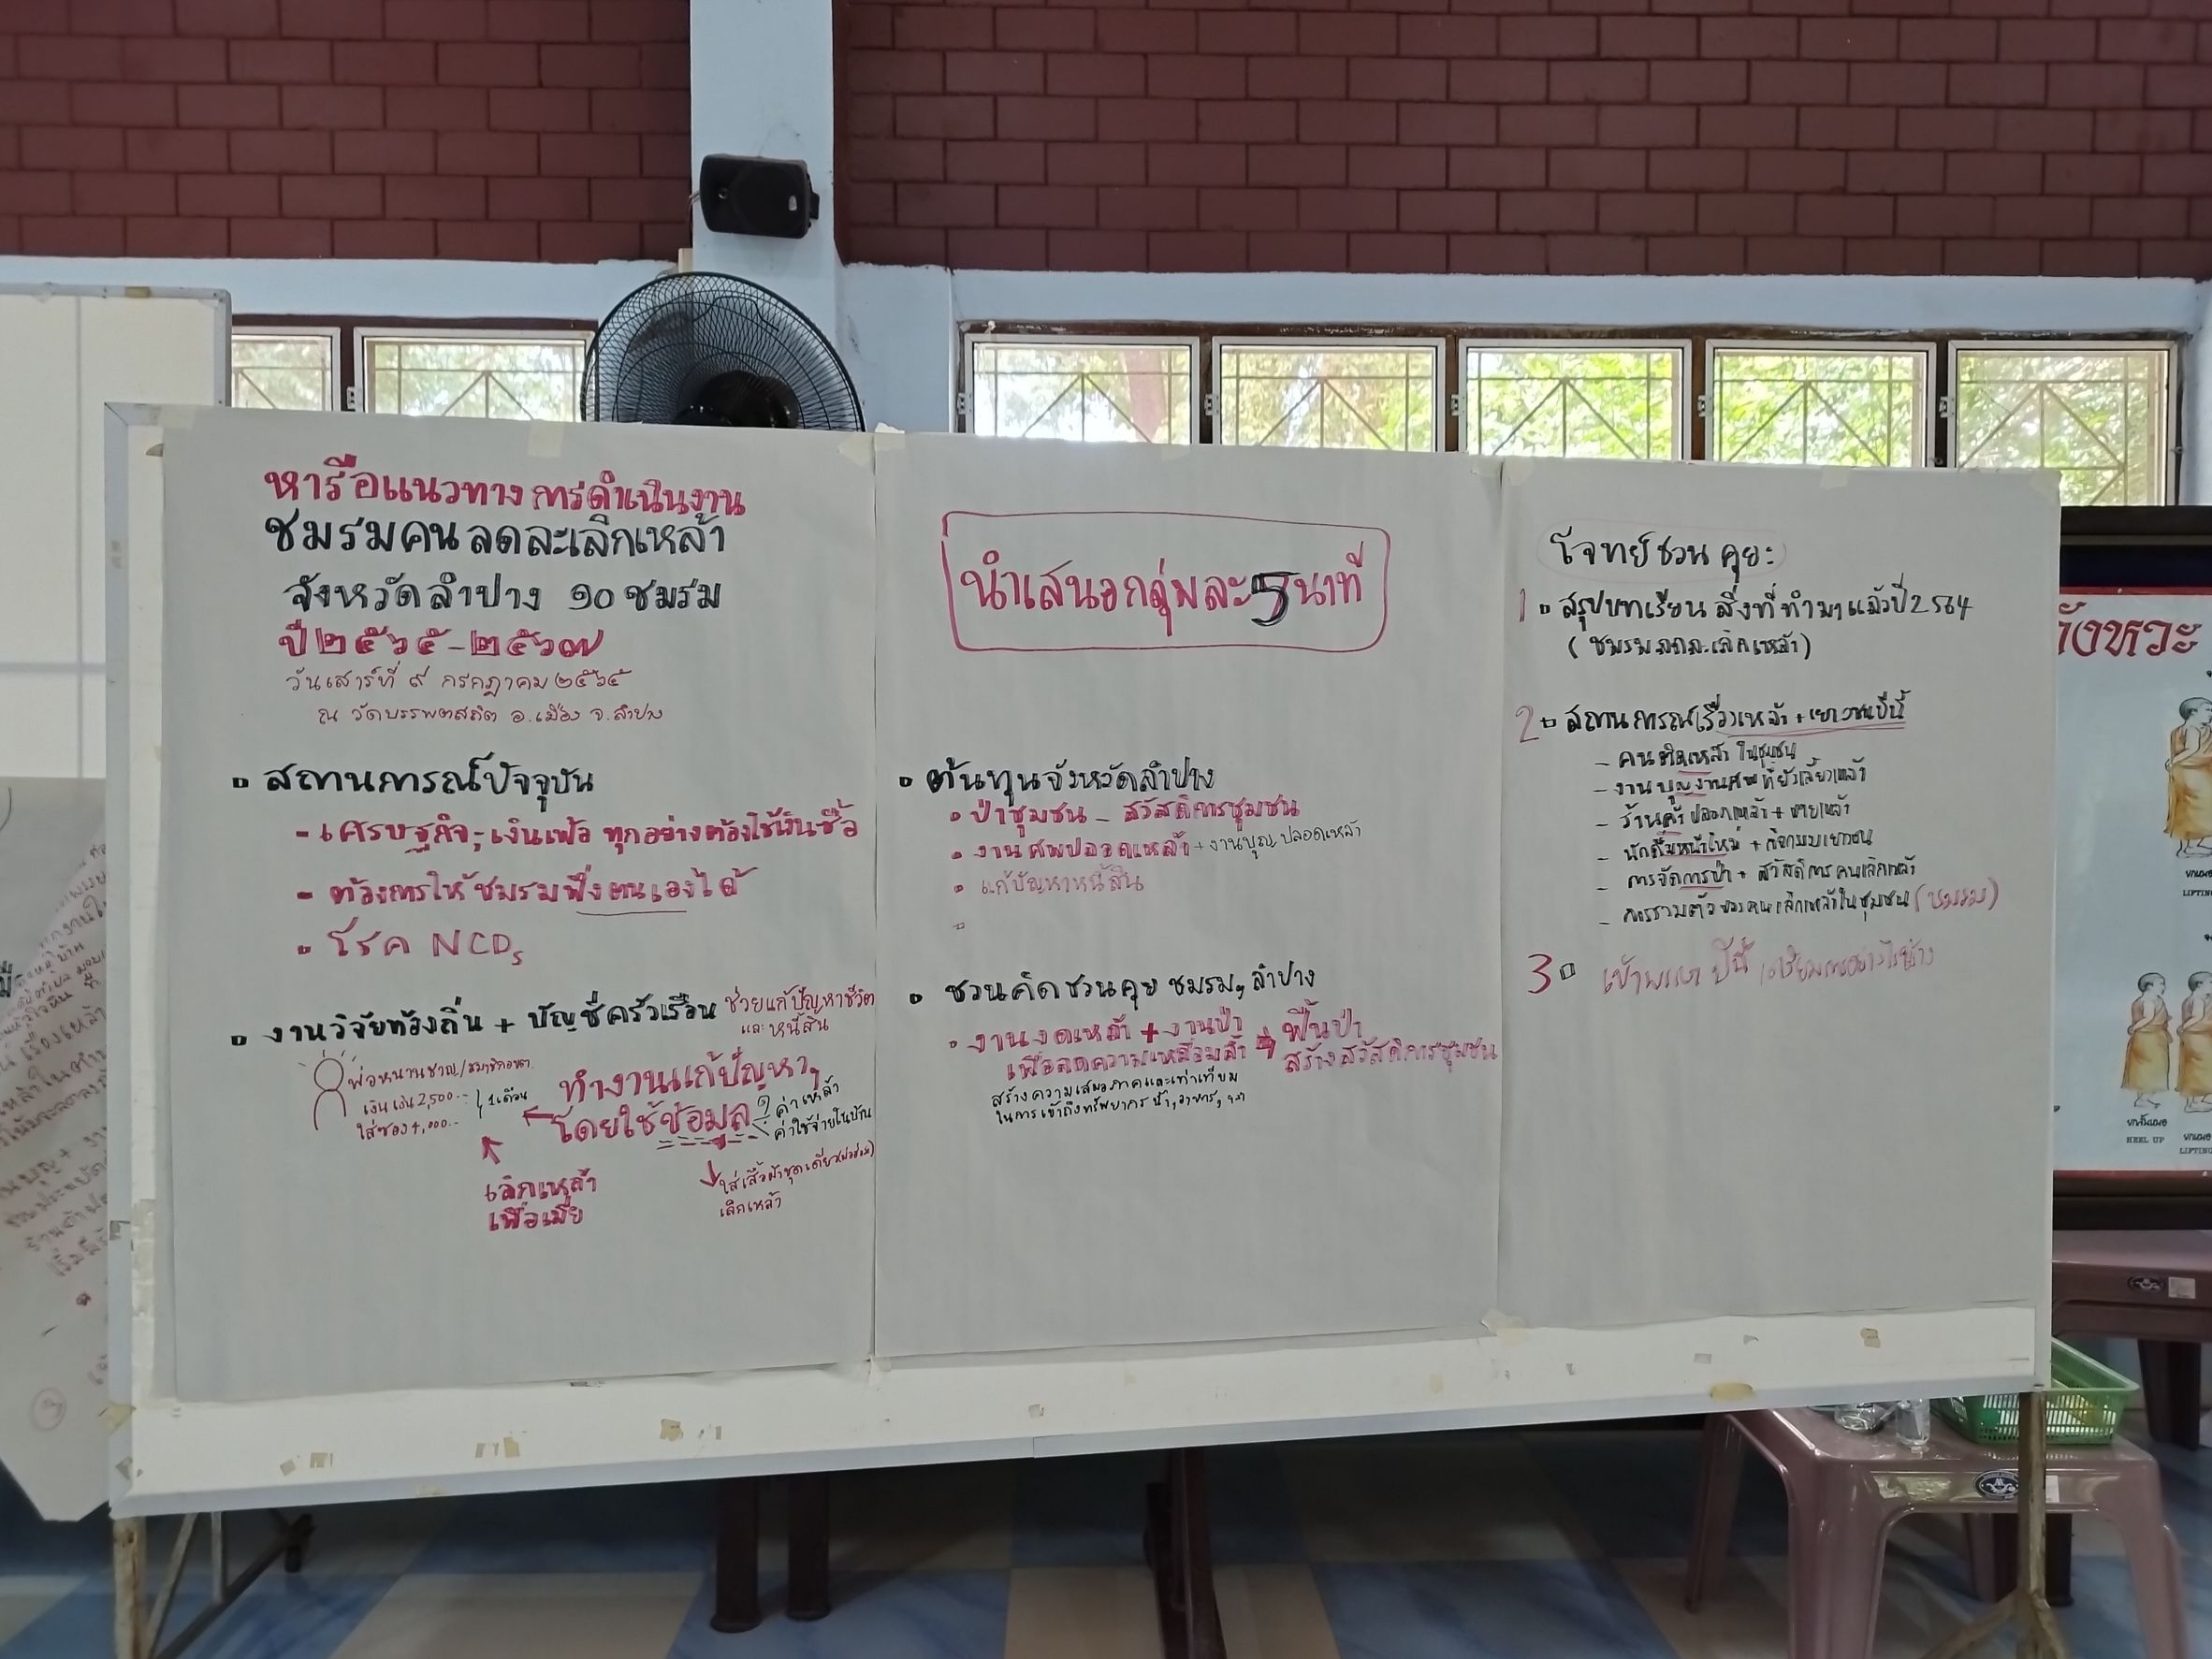 หารือแนวทางการดำเนินงาน
ชมรมคนลดละเลิกเหล้า
จังหวัดลำปาง ๑๐ ชมรม
ปี ๒๕๖๕-๒๕๖๗
วันเสาร์ที่ ๙ กรกฎาคม ๒๕๖๕
ณ วัดบรรพตสถิต อ.เมือง จ.ลำปาง
สถานการณ์ปัจจุบัน
- เศรษฐกิจ; เงินเฟ้อ ทุกอย่างต้องใช้เงินซื้อ
- ต้องการให้ชมรมพึ่งตนเองได้
โรค NCDs
งานวิจัยท้องถิ่น + บัญชีครัวเรือน ช่วยแก้ปัญหาชีวิต
และหนี้สิน
เงินเดิน 2,500.-
1 เดือน
ใส่ซอง 4,000.-
ทำงานแก้ปัญหา,
โดยใช้ข้อมูล
ค่าเหล้า
ค่าใช้จ่ายในบ้าน
เลิกเหล้า
เพื่อเมีย
ใส่เสื้อผ้าชุดเดียว
เลิกเหล้า
นำเสนอกลุ่มละ 5 นาที
ต้นทุนจังหวัดลำปาง
ป่าชุมชน - สวัสดิการชุมชน
งานศพปลอดเหล้า + งานบุญปลอดเหล้า
แก้ปัญหาหนี้สิน
ชวนคิดชวนคุย ชมรมฯ ลำปาง
งานงดเหล้า + งานป่า ⇒ ฟื้นป่า
เพื่อลดความเหลื่อมล้ำ สร้างสวัสดิการชุมชน
สร้างความเสมอภาคและเท่าเทียม
ในการเข้าถึงทรัพยากร น้ำ, อาหาร, ฯลฯ
โจทย์ชวนคุย:
1 สรุปบทเรียน สิ่งที่ทำมาแล้วปี 2564
(ชมรมลดละเลิกเหล้า)
2 สถานการณ์เรื่องเหล้า + เยาวชนปีนี้
- คนติดเหล้าในชุมชน
- งานบุญงานศพที่ยังเลี้ยงเหล้า
- ร้านค้าปลอดเหล้า + ขายเหล้า
- นักดื่มหน้าใหม่ + กิจกรรมเยาวชน
- การจัดการป่า + สวัสดิการคนเลิกเหล้า
- การรวมตัวของคนเลิกเหล้าในชุมชน (ชมรม)
3 เข้าพรรษาปีนี้ เตรียมการอย่างไรบ้าง
จังหวะ
ยกส้นหนอ
HEEL UP
ยกหนอ
LIFTING